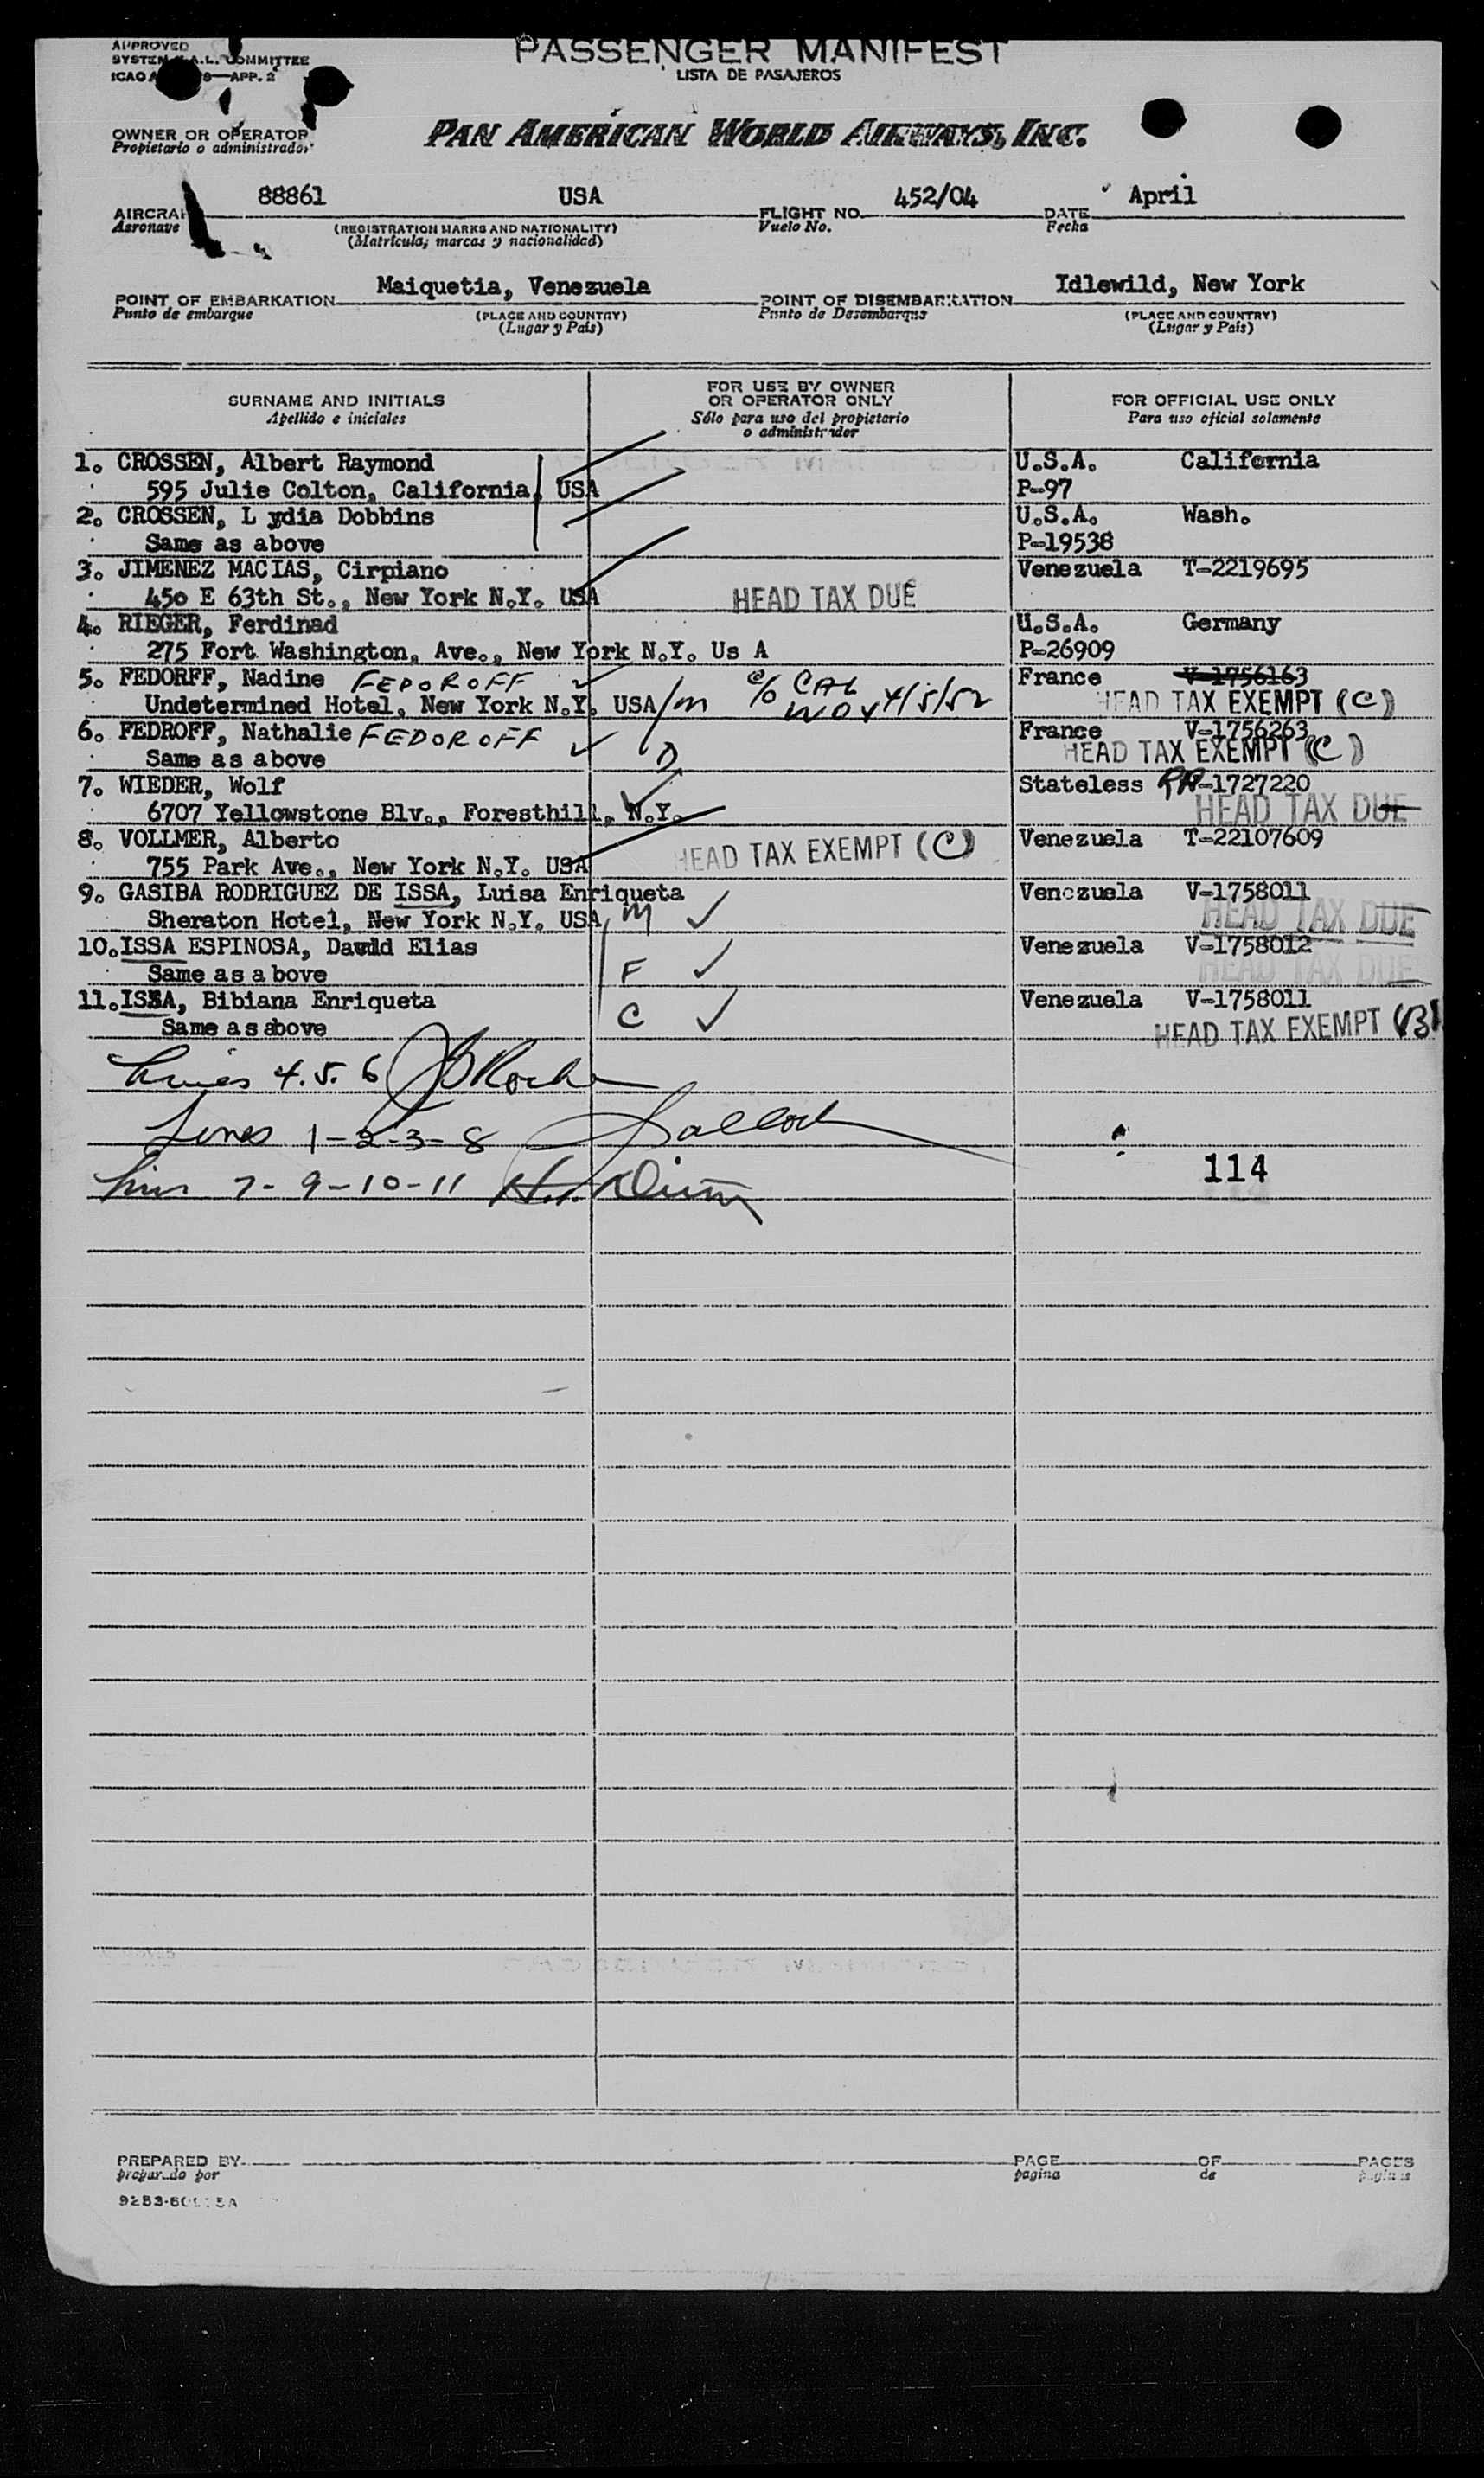 APPROVED
SYSTEM A.L. COMMITTEE
ICAO 9—APP. 2
PASSENGER MANIFEST
LISTA DE PASAJEROS
OWNER OR OPERATOR
Propietario o administrador
PAN AMERICAN WORLD AIRWAYS, INC.
AIRCRA 88861 USA FLIGHT NO. 452/04 DATE April
Aeronave (REGISTRATION MARKS AND NATIONALITY) Vuelo No. Fecha
(Matrícula; marcas y nacionalidad)
POINT OF EMBARKATION Maiquetia, Venezuela POINT OF DISEMBARKATION Idlewild, New York
Punto de embarque (PLACE AND COUNTRY) Punto de Desembarque (PLACE AND COUNTRY)
(Lugar y País) (Lugar y País)
SURNAME AND INITIALS FOR USE BY OWNER OR OPERATOR ONLY FOR OFFICIAL USE ONLY
Apellido e iniciales Sólo para uso del propietario o administrador Para uso oficial solamente
1. CROSSEN, Albert Raymond U.S.A. California
595 Julie Colton, California, USA P-97
2. CROSSEN, L ydia Dobbins U.S.A. Wash.
Same as above P-19538
3. JIMENEZ MACIAS, Cirpiano Venezuela T-2219695
450 E 63th St., New York N.Y. USA HEAD TAX DUE
4. RIEGER, Ferdinad U.S.A. Germany
275 Fort Washington, Ave., New York N.Y. Us A P-26909
5. FEDORFF, Nadine FEDOROFF France V-1756163
Undetermined Hotel, New York N.Y. USA m c/o CAL WOY 4/5/52 HEAD TAX EXEMPT (C)
6. FEDROFF, Nathalie FEDOROFF France V-1756263
Same as above D HEAD TAX EXEMPT (C)
7. WIEDER, Wolf Stateless RP-1727220
6707 Yellowstone Blv., Foresthill, N.Y. HEAD TAX DUE
8. VOLLMER, Alberto Venezuela T-22107609
755 Park Ave., New York N.Y. USA HEAD TAX EXEMPT (C)
9. GASIBA RODRIGUEZ DE ISSA, Luisa Enriqueta Venezuela V-1758011
Sheraton Hotel, New York N.Y. USA M HEAD TAX DUE
10. ISSA ESPINOSA, David Elias Venezuela V-1758012
Same as a bove F HEAD TAX DUE
11. ISSA, Bibiana Enriqueta Venezuela V-1758011
Same as above C HEAD TAX EXEMPT (B)
Lines 4. 5. 6
Lines 1-2-3-8
Lines 7-9-10-11
114
PREPARED BY PAGE OF PAGES
preparado por pagina de paginas